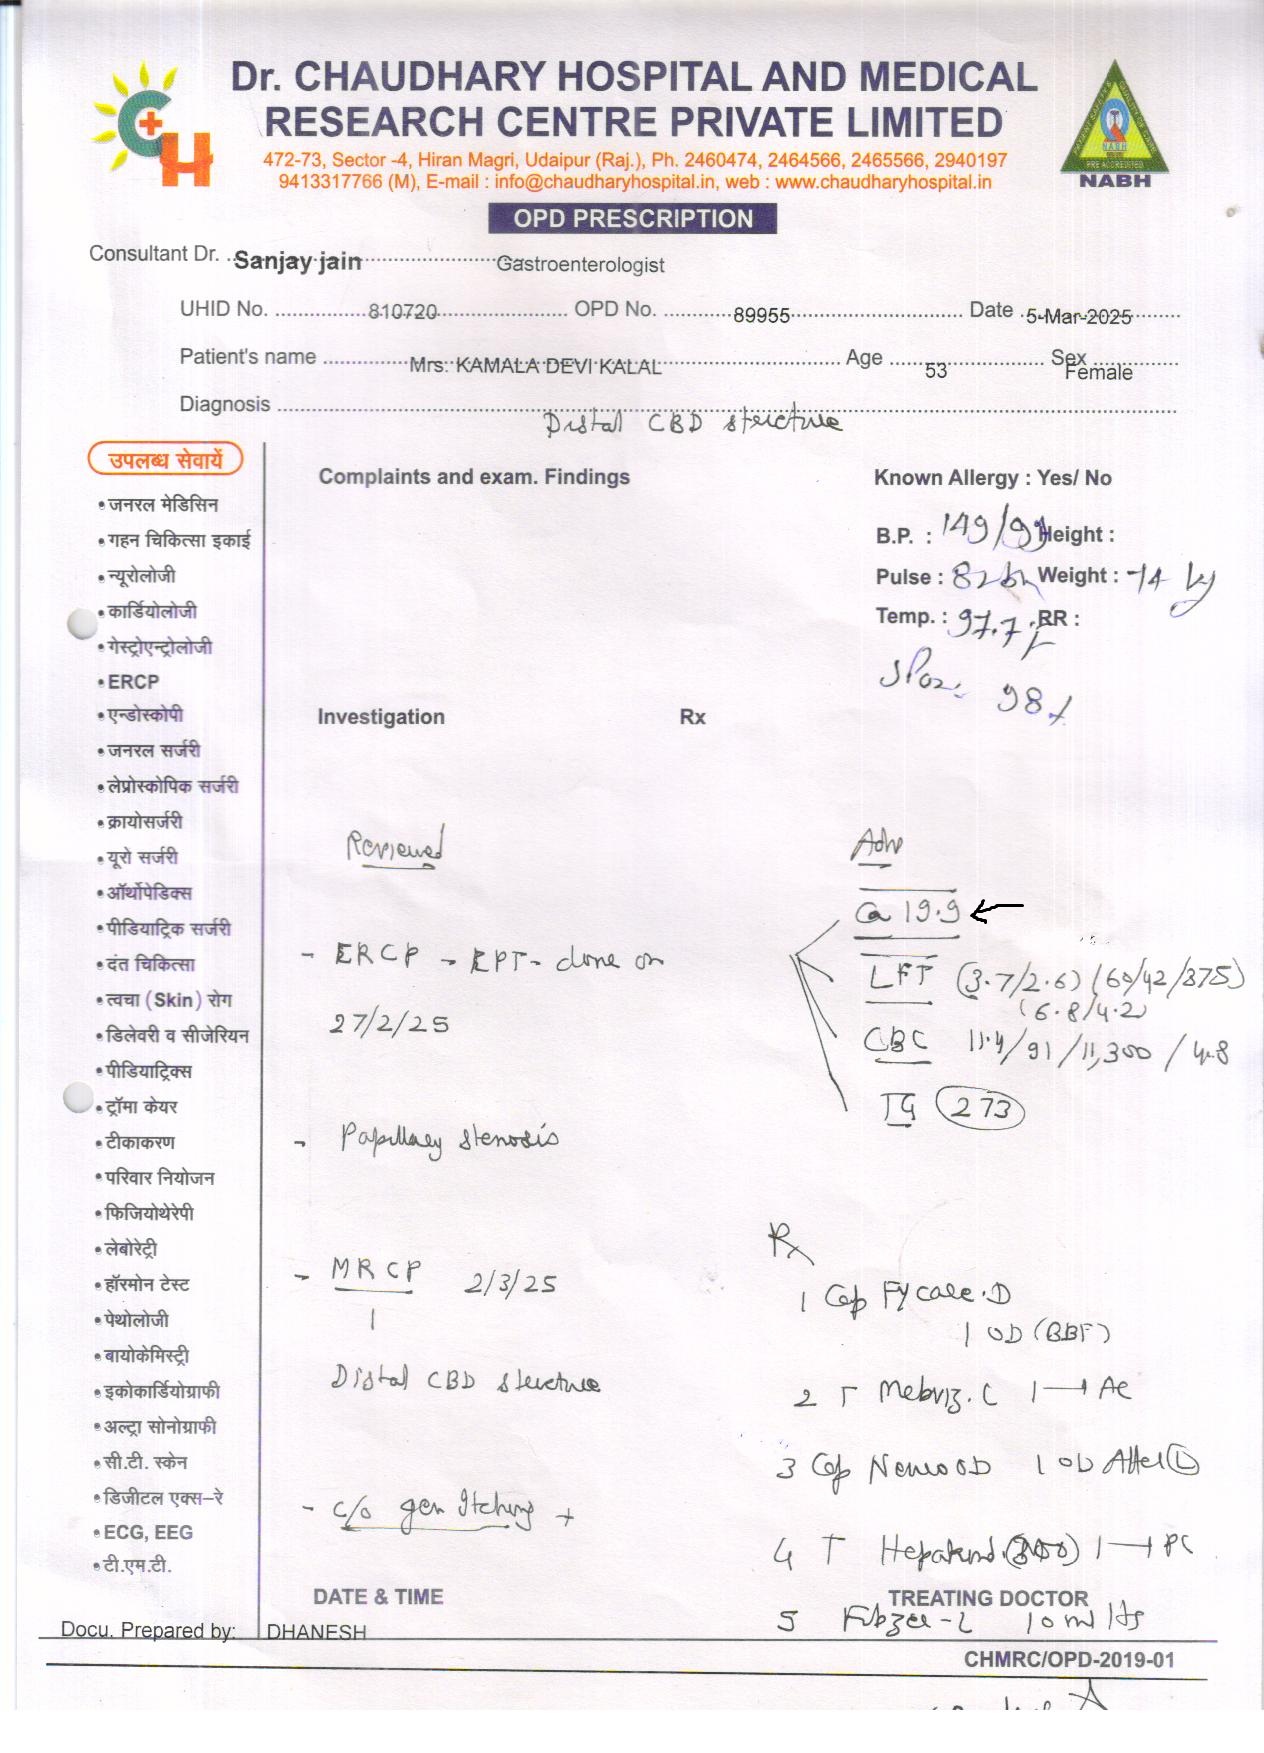 Dr. CHAUDHARY HOSPITAL AND MEDICAL
RESEARCH CENTRE PRIVATE LIMITED
472-73, Sector -4, Hiran Magri, Udaipur (Raj.), Ph. 2460474, 2464566, 2465566, 2940197
9413317766 (M), E-mail : info@chaudharyhospital.in, web : www.chaudharyhospital.in
CH
NABH
PRE ACCREDITED
NABH
OPD PRESCRIPTION
Consultant Dr. Sanjay jain Gastroenterologist
UHID No. 810720 OPD No. 89955 Date 5-Mar-2025
Patient's name Mrs. KAMALA DEVI KALAL Age 53 Sex Female
Diagnosis Distal CBD stricture
उपलब्ध सेवायें
• जनरल मेडिसिन
• गहन चिकित्सा इकाई
• न्यूरोलोजी
• कार्डियोलोजी
• गेस्ट्रोएन्ट्रोलोजी
• ERCP
• एन्डोस्कोपी
• जनरल सर्जरी
• लेप्रोस्कोपिक सर्जरी
• क्रायोसर्जरी
• यूरो सर्जरी
• ऑर्थोपेडिक्स
• पीडियाट्रिक सर्जरी
• दंत चिकित्सा
• त्वचा (Skin) रोग
• डिलेवरी व सीजेरियन
• पीडियाट्रिक्स
• ट्रॉमा केयर
• टीकाकरण
• परिवार नियोजन
• फिजियोथेरेपी
• लेबोरेट्री
• हॉरमोन टेस्ट
• पेथोलोजी
• बायोकेमिस्ट्री
• इकोकार्डियोग्राफी
• अल्ट्रा सोनोग्राफी
• सी.टी. स्केन
• डिजीटल एक्स-रे
• ECG, EEG
• टी.एम.टी.
Complaints and exam. Findings
Known Allergy : Yes/ No
B.P. : 149/99 Height :
Pulse : 82 Weight : 74 kg
Temp. : 97.7 F RR :
SPO2 98%
Investigation Rx
Reviewed
- ERCP - EPT - done on
27/2/25
- Papillary stenosis
- MRCP 2/3/25
Distal CBD stricture
- c/o gen Itching +
Adv
Ca 19.9 ←
LFT (3.7/2.6) (60/42/375)
(6.8/4.2)
CBC 11.4/91/11,300/4.8
TG 273
Rx
1 Cap Fycare.D
1 OD (BBF)
2 T Mebviz.C 1 → AC
3 Cap OD 1 OD After L
4 T 1 → PC
5 10 ml
DATE & TIME
TREATING DOCTOR
Docu. Prepared by: DHANESH
CHMRC/OPD-2019-01